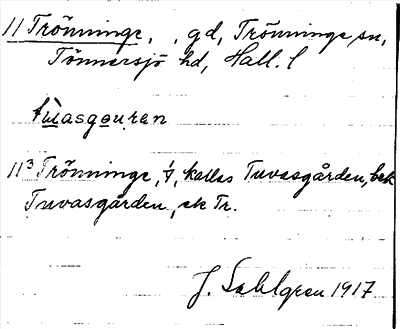 11 Trönninge, , gd, Trönninge sn,
Tönnersjö hd, Hall. l
tùasgɑuɳan
11³ Trönninge, ⅟, kallas Tuvasgården, bek
Tuvasgården, ek Tr.
J. Sahlgren 1917